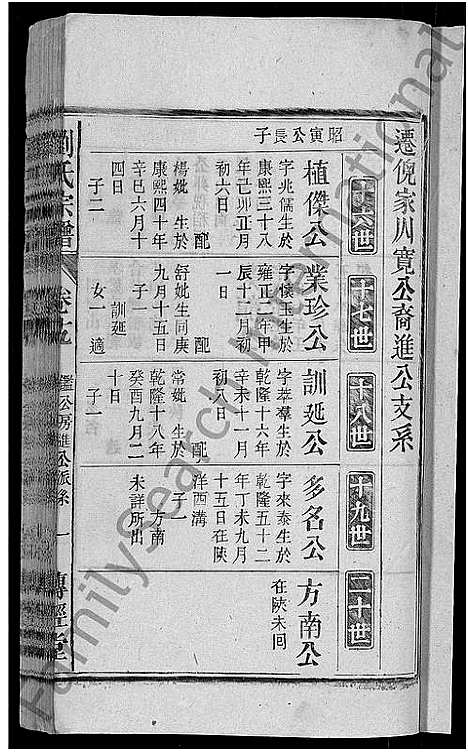 遷倪家凹寛公裔進公支系
十六世
十七世
十八世
十九世
二十世
昭寅公長子
植傑公
字兆儒生於
康熙三十八
年己卯正月
初六日 配
楊妣 生於
康熙四十年
辛巳六月十
四日
子二
業珍公
字懷玉生於
雍正二年甲
辰十二月初
一日 配
舒妣生同庚
九月十五日
子一
訓延
女一適
訓延公
字萃羣生於
乾隆十六年
辛未十一月
初八日 配
常妣 生於
乾隆十八年
癸酉九月二
十日
子一
多名公
字來泰生於
乾隆五十二
年丁未九月
十五日在陝
洋西溝
子一
方南
未詳所出
方南公
在陝未回
劉氏宗譜
卷之九
公房進公派系
一
傳經堂
FamilySearch International